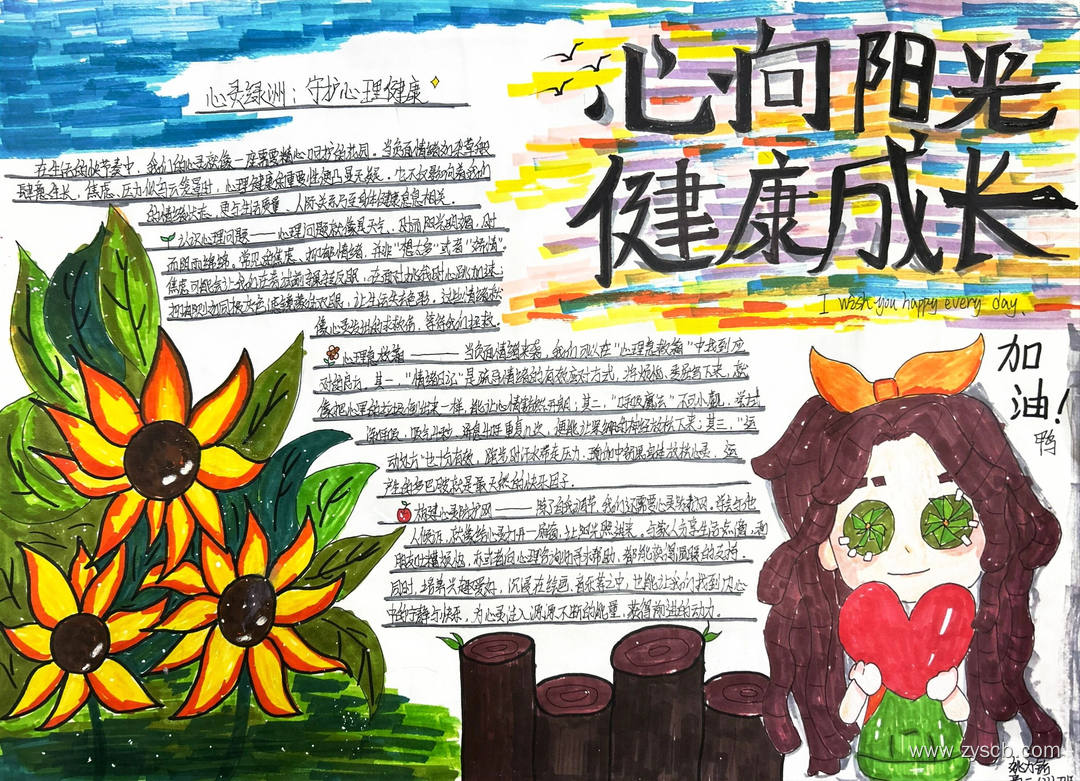 心向阳光
健康成长
I wish you happy every day.
心灵绿洲：守护心理健康
在生活的快节奏中，我们的心灵就像一座需要精心呵护的花园。当负面情绪如杂草般
肆意生长，焦虑、压力似乌云笼罩时，心理健康的重要性便凸显无疑。也不仅影响着我们
的情绪状态，更与生活质量、人际关系乃至身体健康息息相关。
认识心理问题——心理问题就像是天气，时而阳光明媚，时
而阴雨绵绵，常见的焦虑、抑郁情绪，并非"想太多"或者"矫情"
焦虑可能会让我们在考试前辗转反侧，在面对挑战时心跳加速；
抑郁则如同灰色滤镜，让生活失去色彩，这些情绪就
像心灵发出的求救信号，等待我们拉起。
心理急救箱——当负面情绪来袭，我们可以在"心理急救箱"中找到应
对的良方。其一，"情绪日记"是疏导情绪的有效应对方式，将烦恼、委屈写下来，就
像把心里的垃圾倒出来一样，能让心情轻松开朗；其二，"呼吸魔法"不可小觑，尝试
深呼吸，吸气 秒，重复几次，便能让紧绷的神经放松下来；其三，"运
动处方"也十分有效，跑步时汗水带走压力，瑜伽中舒展身体放松心灵，运
产生的多巴胺就是最天然的快乐因子。
构建心灵防护网——除了自我调节，我们还需要心灵防护网，学会与他
人倾诉，就像给心灵打开一扇窗，让阳光照进来，与家人分享生活点滴，和
朋友吐槽烦恼，不或者向心理咨询师寻求帮助，都能获得温暖的支持。
同时，培养兴趣爱好，沉浸在绘画、音乐等之中，也能让我们找到内心
中的宁静与快乐，为心灵注入源源不断的能量，获得前进的动力。
加
油！
鸭
www.zyscb.com